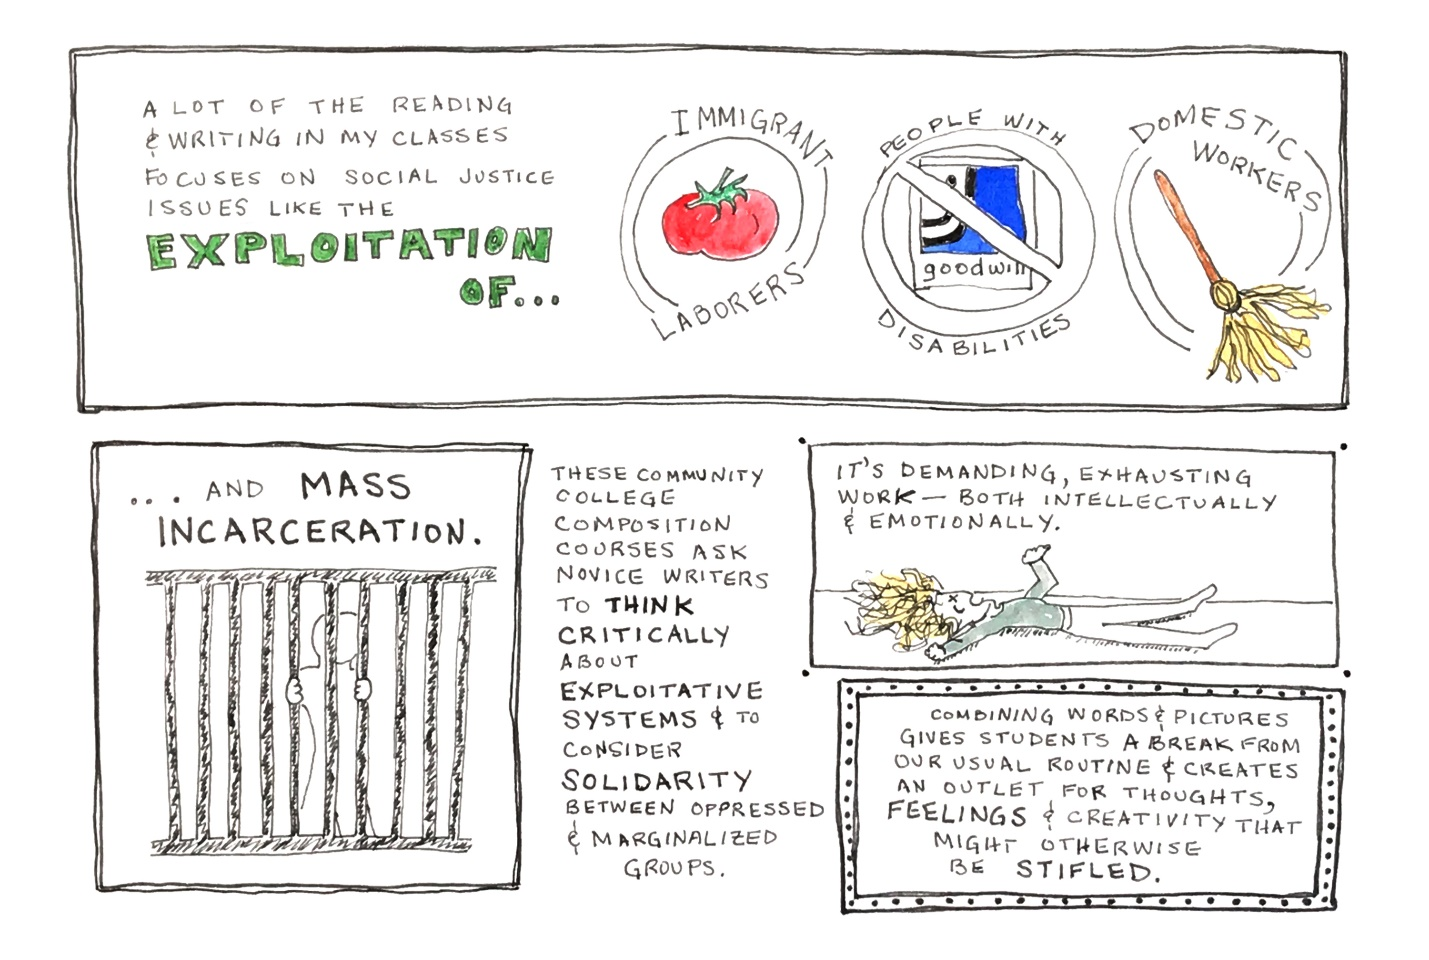 A LOT OF THE READING
& WRITING IN MY CLASSES
FOCUSES ON SOCIAL JUSTICE
ISSUES LIKE THE
EXPLOITATION
OF...
IMMIGRANT
LABORERS
PEOPLE WITH
goodwill
DISABILITIES
DOMESTIC
WORKERS
... AND MASS
INCARCERATION.
THESE COMMUNITY
COLLEGE
COMPOSITION
COURSES ASK
NOVICE WRITERS
TO THINK
CRITICALLY
ABOUT
EXPLOITATIVE
SYSTEMS & TO
CONSIDER
SOLIDARITY
BETWEEN OPPRESSED
& MARGINALIZED
GROUPS.
IT'S DEMANDING, EXHAUSTING
WORK — BOTH INTELLECTUALLY
& EMOTIONALLY.
COMBINING WORDS & PICTURES
GIVES STUDENTS A BREAK FROM
OUR USUAL ROUTINE & CREATES
AN OUTLET FOR THOUGHTS,
FEELINGS & CREATIVITY THAT
MIGHT OTHERWISE
BE STIFLED.